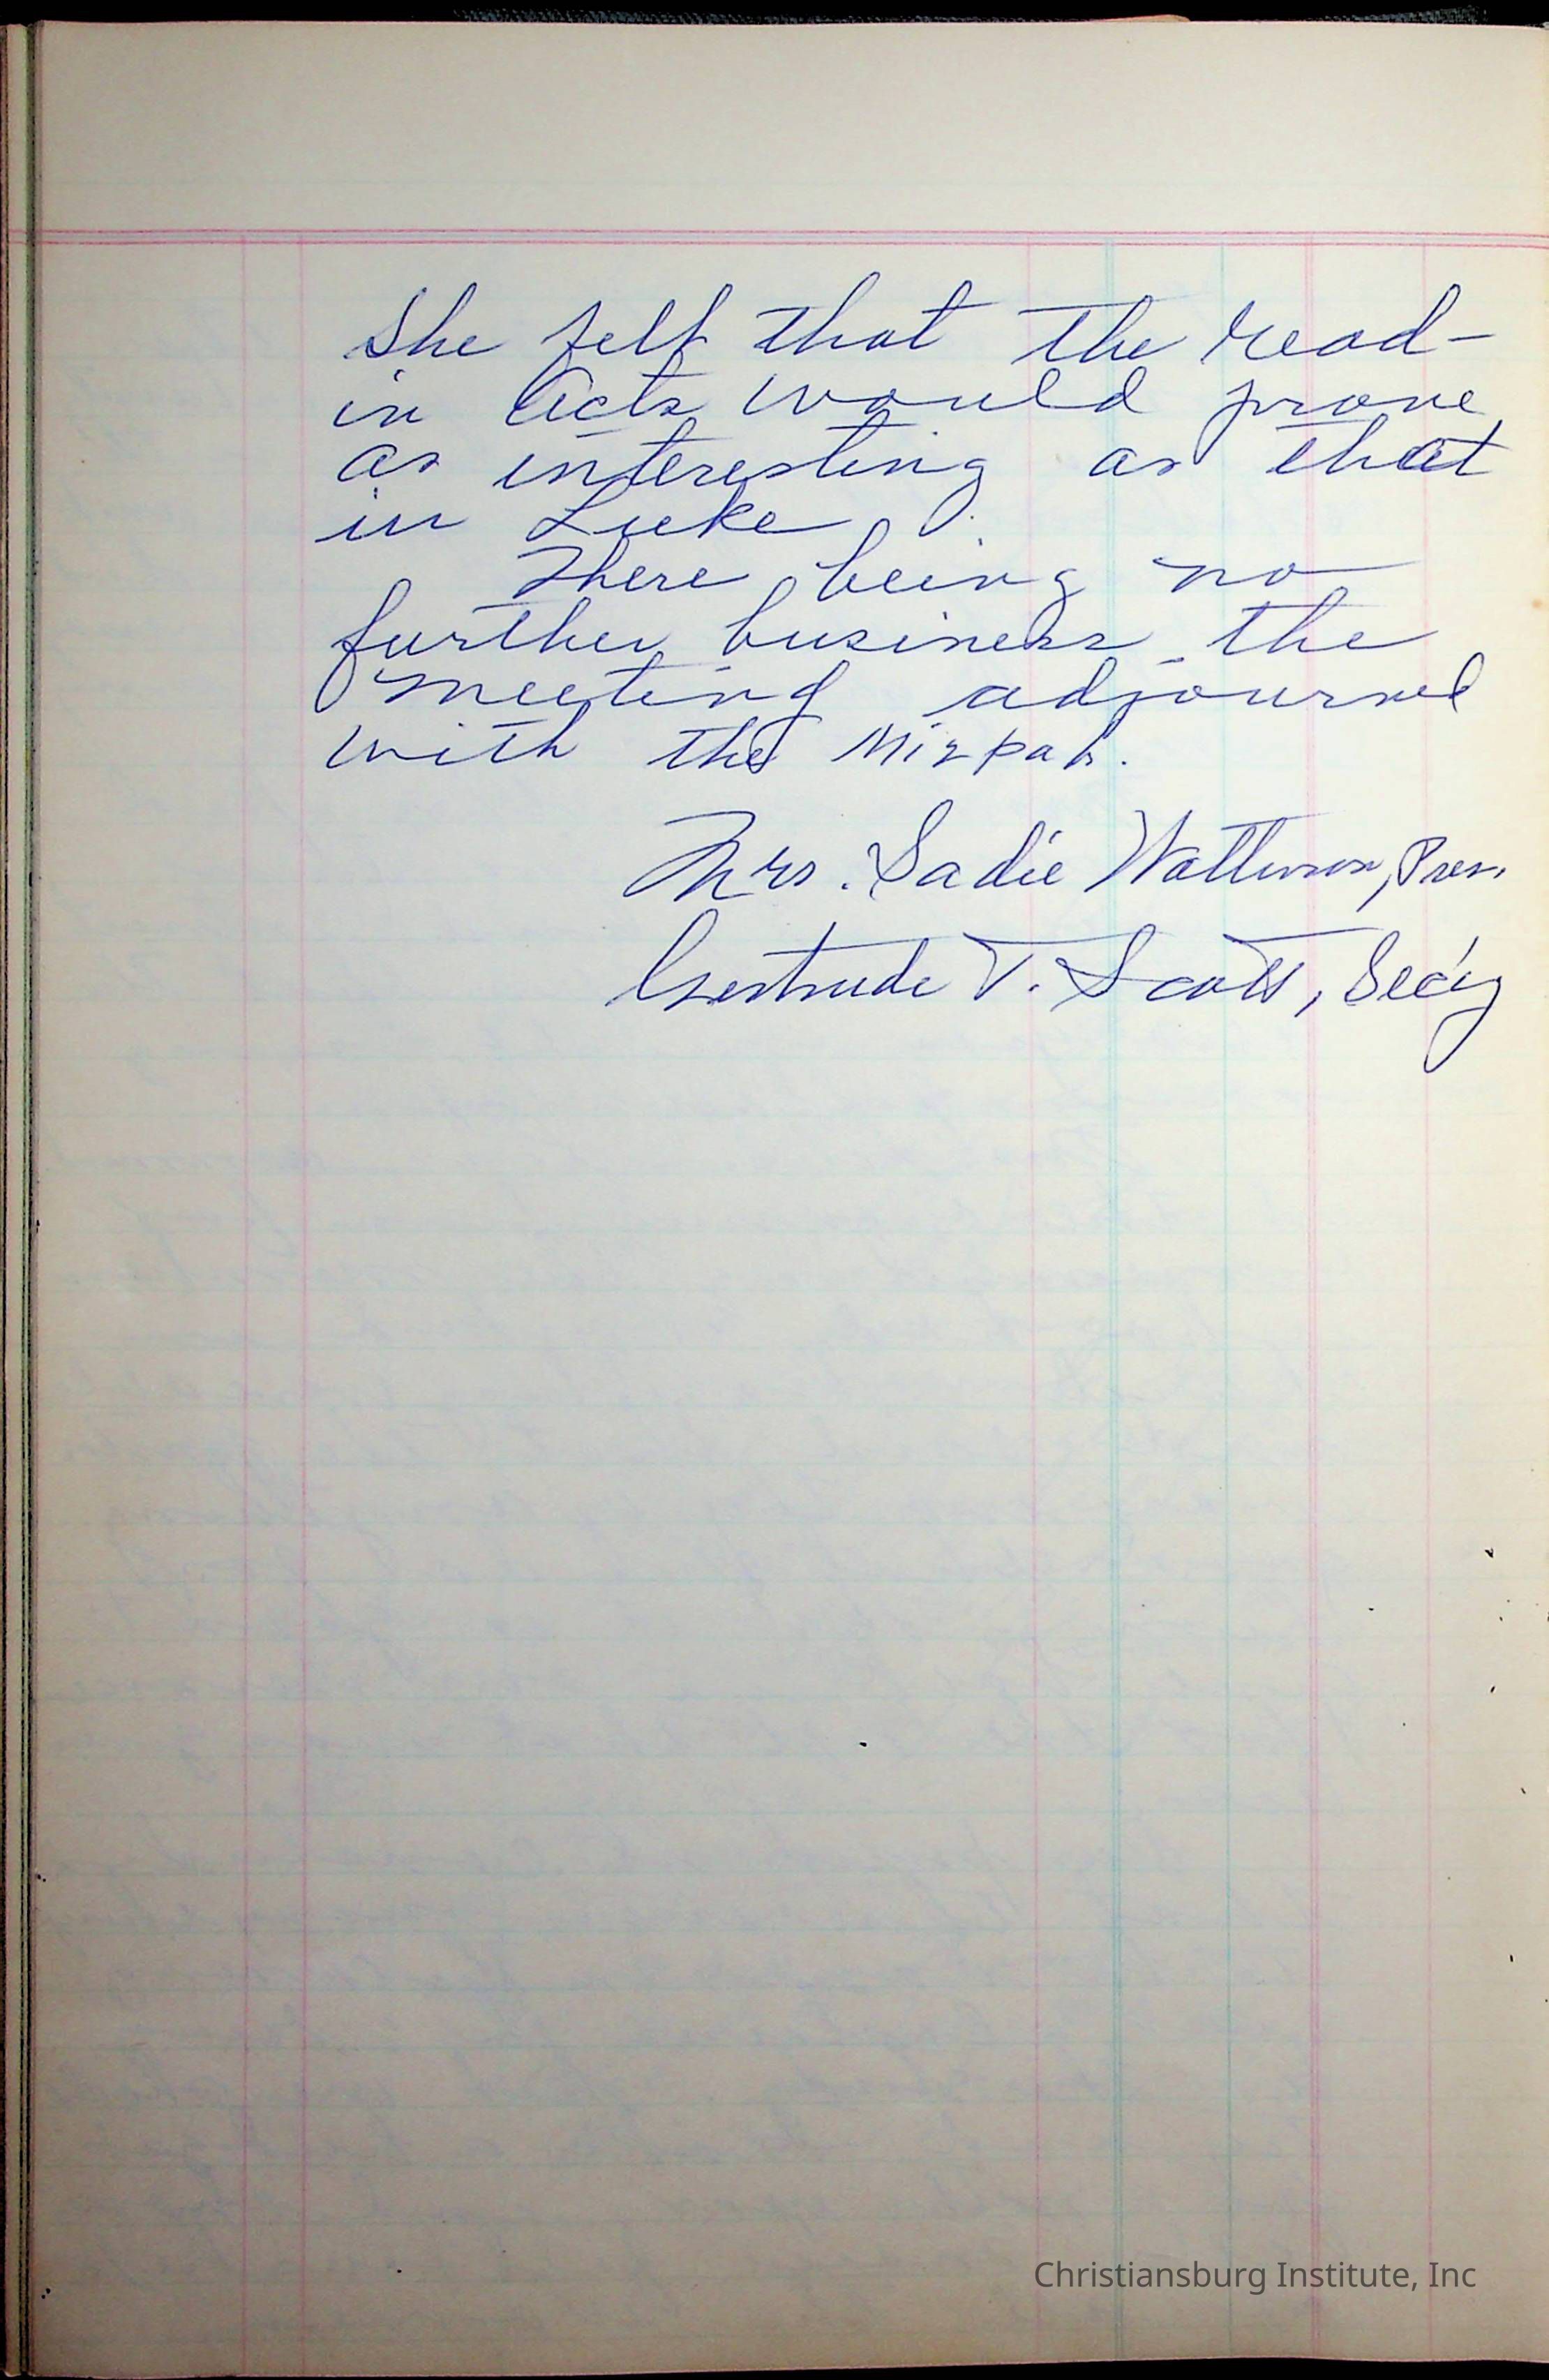 She felt that the read-
in Acts would prove
as interesting as that
in Luke.
There being no
further business the
meeting adjourned
with the Mizpah.
Mrs. Sadie Pres.
Gertrude T. Scott, Sec'y
Christiansburg Institute, Inc